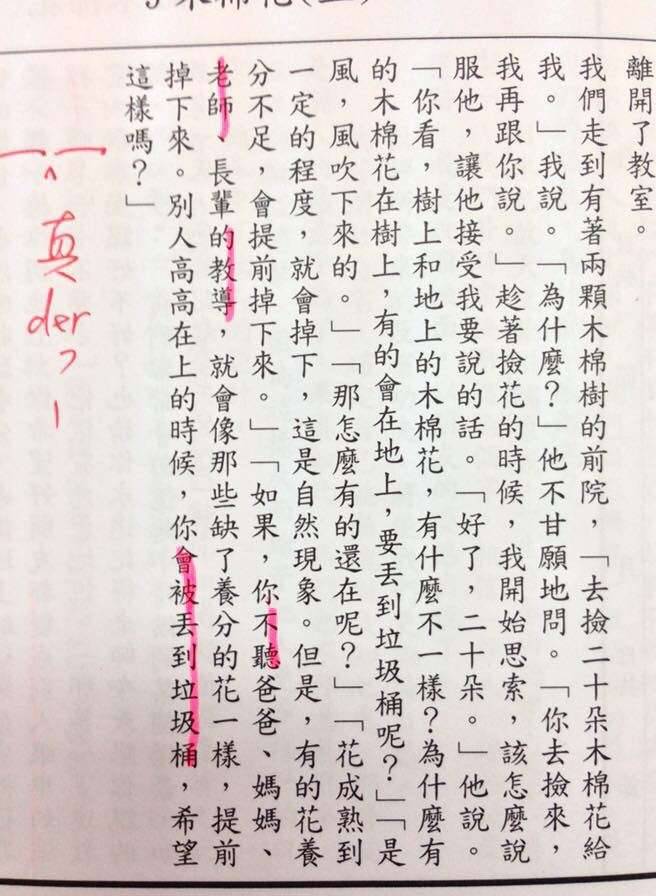 木棉花(二)
離開了教室。
我們走到有著兩顆木棉樹的前院，「去撿二十朵木棉花給
我。」我說。「為什麼？」他不甘願地問。「你去撿來，
我再跟你說。」趁著撿花的時候，我開始思索，該怎麼說
服他，讓他接受我要說的話。「好了，二十朵。」他說。
「你看，樹上和地上的木棉花，有什麼不一樣？為什麼有
的木棉花在樹上，有的會在地上，要丟到垃圾桶呢？」「是
風，風吹下來的。」「那怎麼有的還在呢？」「花成熟到
一定的程度，就會掉下，這是自然現象。但是，有的花養
分不足，會提前掉下來。」「如果，你不聽爸爸、媽媽、
老師、長輩的教導，就會像那些缺了養分的花一樣，提前
掉下來。別人高高在上的時候，你會被丟到垃圾桶，希望
這樣嗎？」
真
der